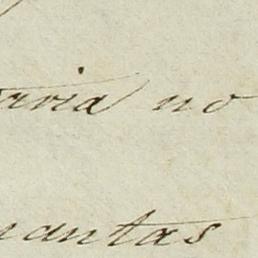 aria no
uantas